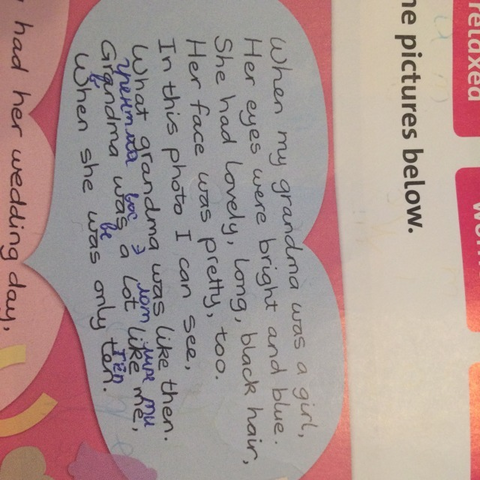 relaxed
ne pictures below.
When my grandma was a girl,
Her eyes were bright and blue.
She had lovely, long, black hair,
Her face was pretty, too.
In this photo I can see,
What grandma was like then.
грентма вос э лот ми
Grandma was a lot like me,
тен
When she was only ten.
had her wedding day,